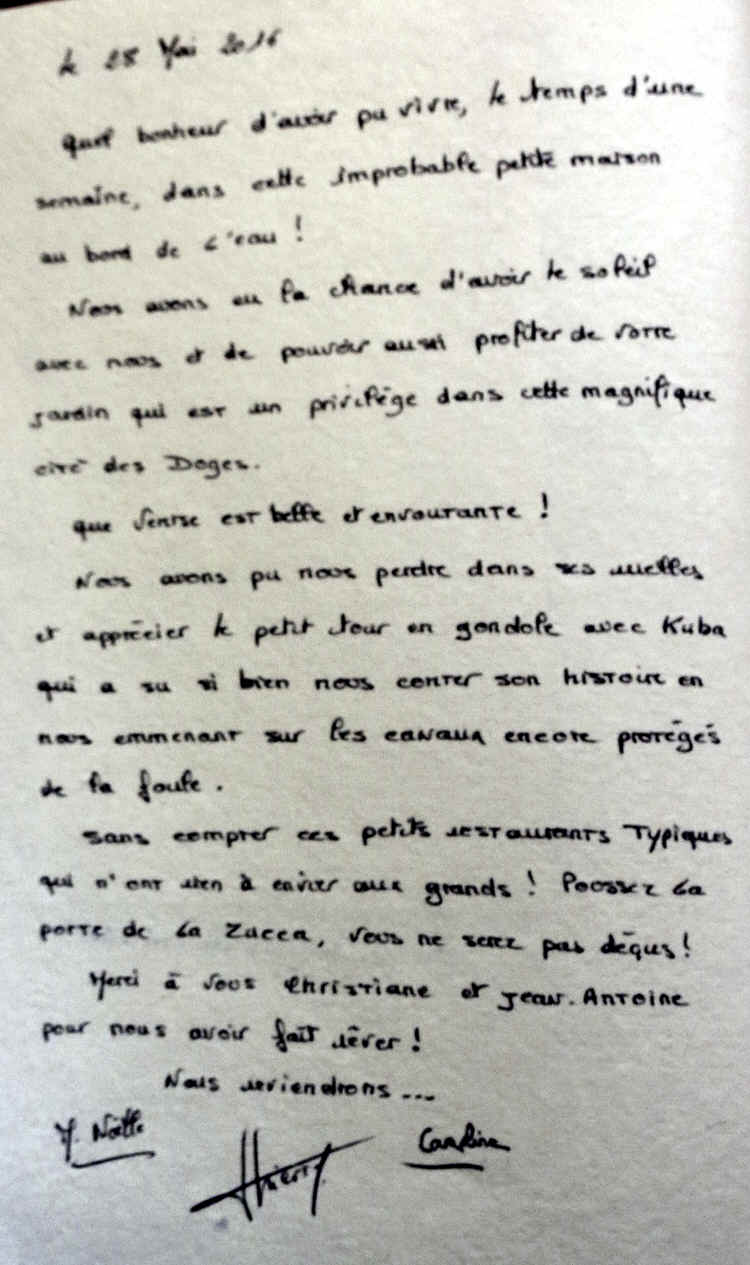 le 28 Mai 2016
Quel bonheur d'avoir pu vivre, le temps d'une
semaine, dans cette improbable petite maison
au bord de l'eau !
Nous avons eu la chance d'avoir le soleil
avec nous et de pouvoir aussi profiter de votre
jardin qui est un privilège dans cette magnifique
cité des Doges.
que Venise est belle et envourante !
Nous avons pu nous perdre dans ses ruelles
et apprécier le petit tour en gondole avec Kuba
qui a su si bien nous conter son histoire en
nous emmenant sur les canaux encore protégés
de la foule.
Sans compter ces petits restaurants Typiques
qui n'ont rien à envier aux grands ! Poussez la
porte de la Zucca, vous ne serez pas déçus !
Merci à vous Christiane et Jean-Antoine
pour nous avoir fait rêver !
Nous reviendrons ...
M. Noëlle
Thierry
Caroline